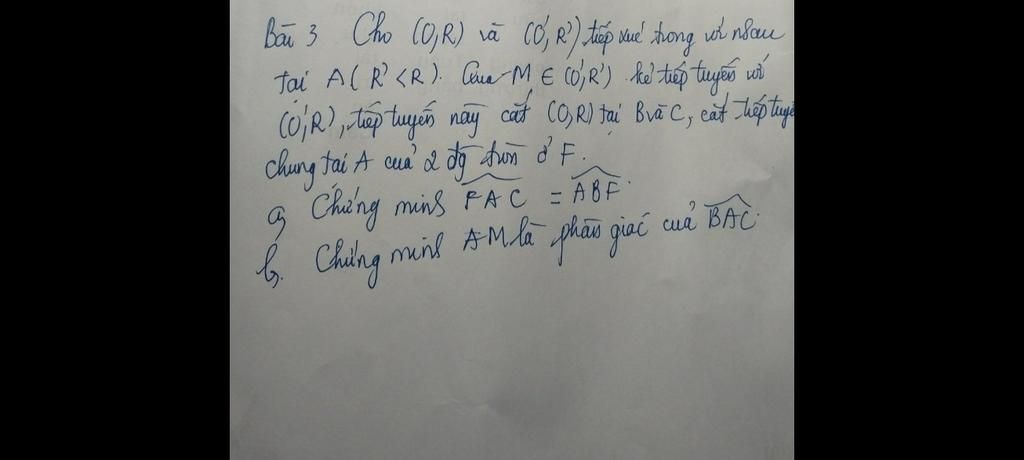 Bài 3 Cho (O,R) và (O', R') tiếp xúc trong với nhau
tại A ( R' < R). Qua M ∈ (O',R') kẻ tiếp tuyến với
(O',R), tiếp tuyến này cắt (O,R) tại B và C, cắt tiếp tuyế
chung tại A của 2 đg tròn ở F.
a, Chứng minh \widehat{FAC} = \widehat{ABF}.
b. Chứng minh AM là phân giác của \widehat{BAC}.